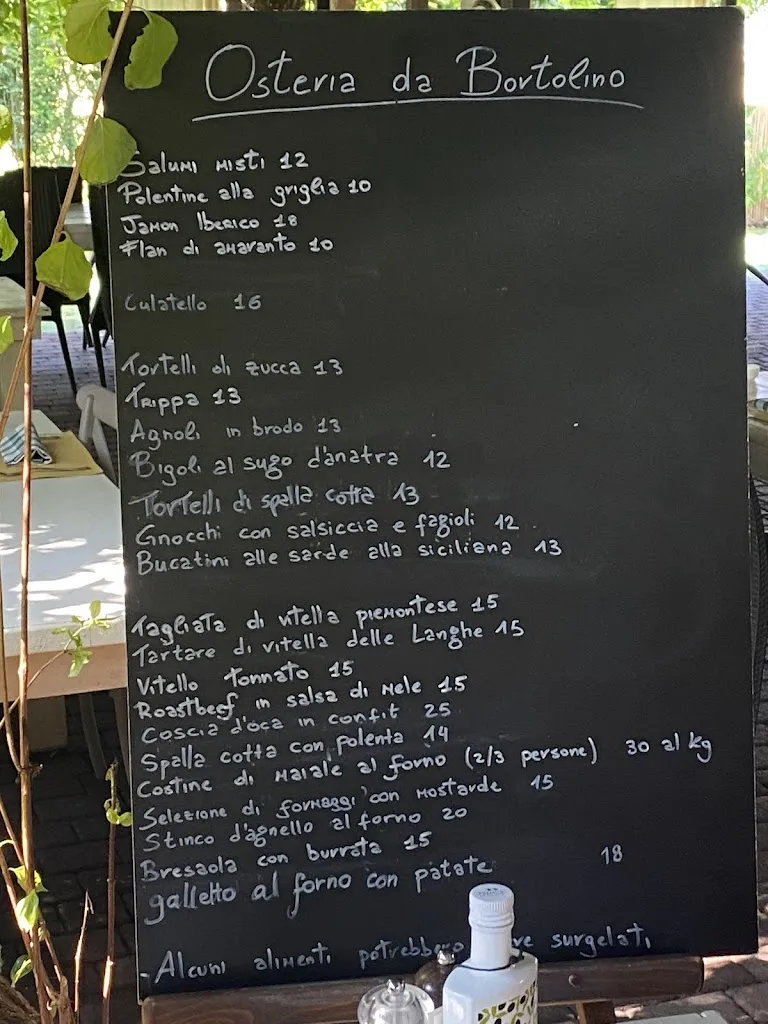 Osteria da Bortolino
Salumi misti 12
Polentine alla griglia 10
Jamon Iberico 18
Flan di amaranto 10
Culatello 16
Tortelli di zucca 13
Trippa 13
Agnoli in brodo 13
Bigoli al sugo d'anatra 12
Tortelli di spalla cotta 13
Gnocchi con salsiccia e fagioli 12
Bucatini alle sarde alla siciliana 13
Tagliata di vitella piemontese 15
Tartare di vitella delle Langhe 15
Vitello tonnato 15
Roastbeef in salsa di mele 15
Coscia d'oca in confit 25
Spalla cotta con polenta 14
Costine di maiale al forno (2/3 persone) 30 al kg
Selezione di formaggi con mostarde 15
Stinco d'agnello al forno 20
Bresaola con burrata 15
galletto al forno con patate 18
- Alcuni alimenti surgelati